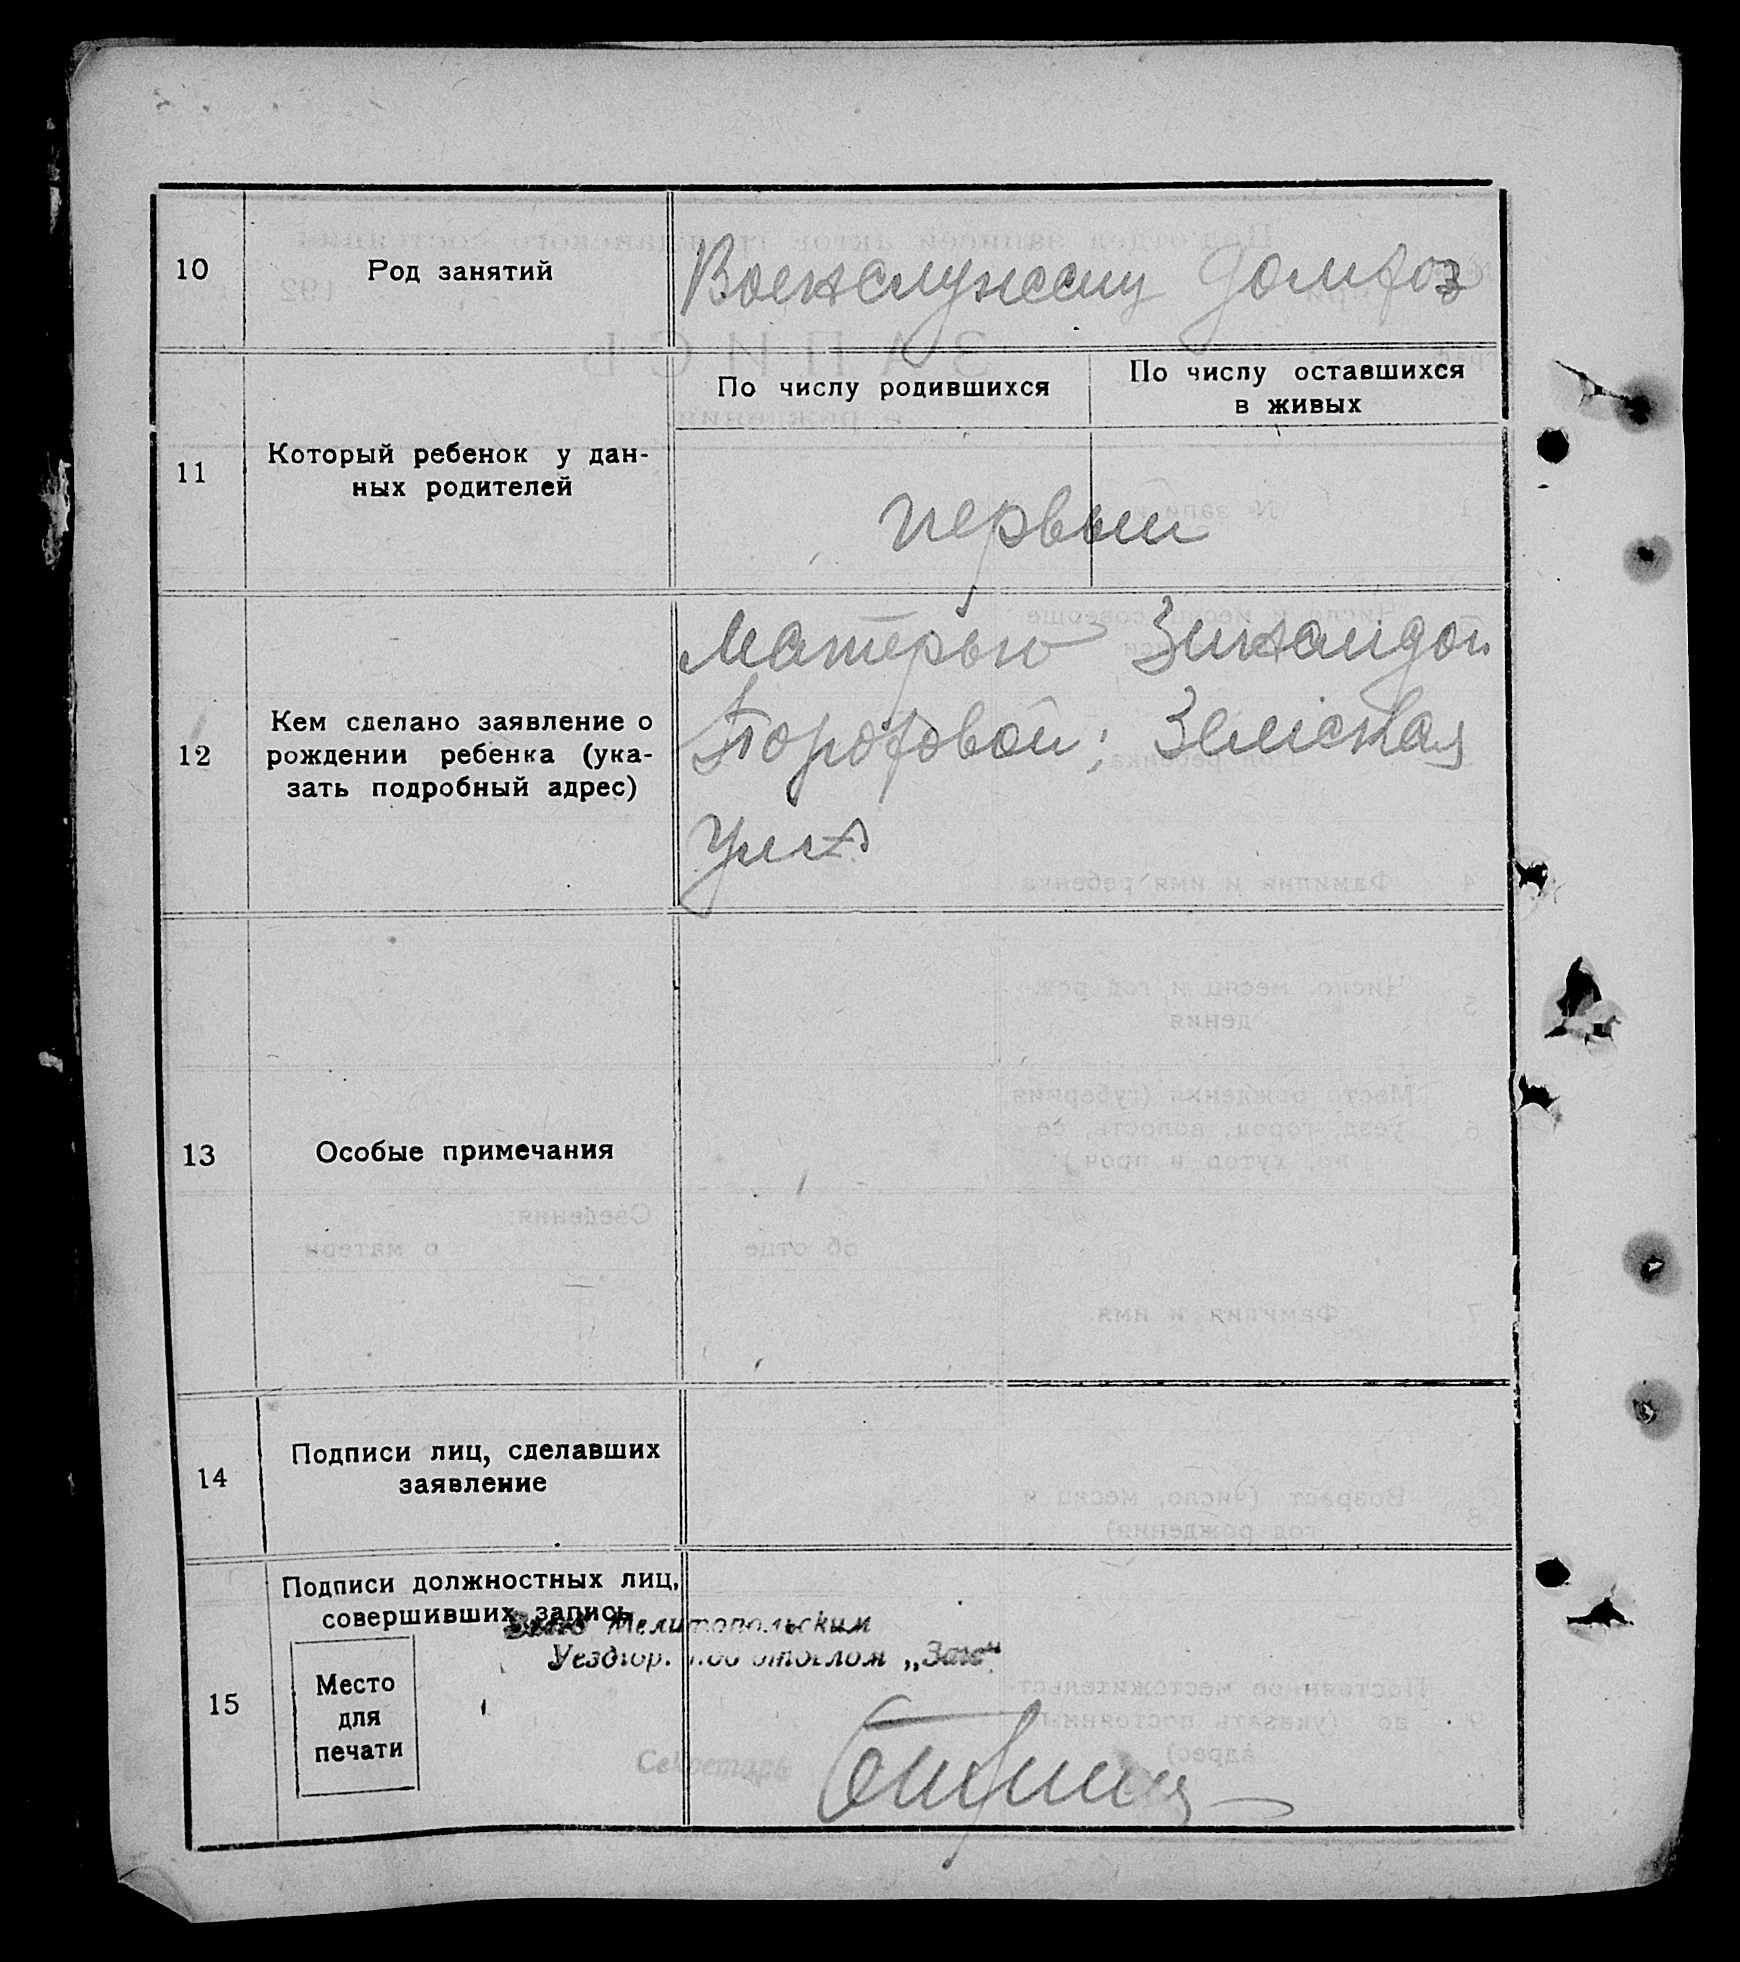 10
Род занятий
Военслужащ домхоз
11
Который ребенок у дан-
ных родителей
По числу родившихся
По числу оставшихся
в живых
первый
12
Кем сделано заявление о
рождении ребенка (ука-
зать подробный адрес)
Матерью Зинаидой
Земская
ул
13
Особые примечания
14
Подписи лиц, сделавших
заявление
15
Подписи должностных лиц,
совершивших запись
Мелитопольским
Уездгор. подотделом „Загс“
Место
для
печати
Секретарь